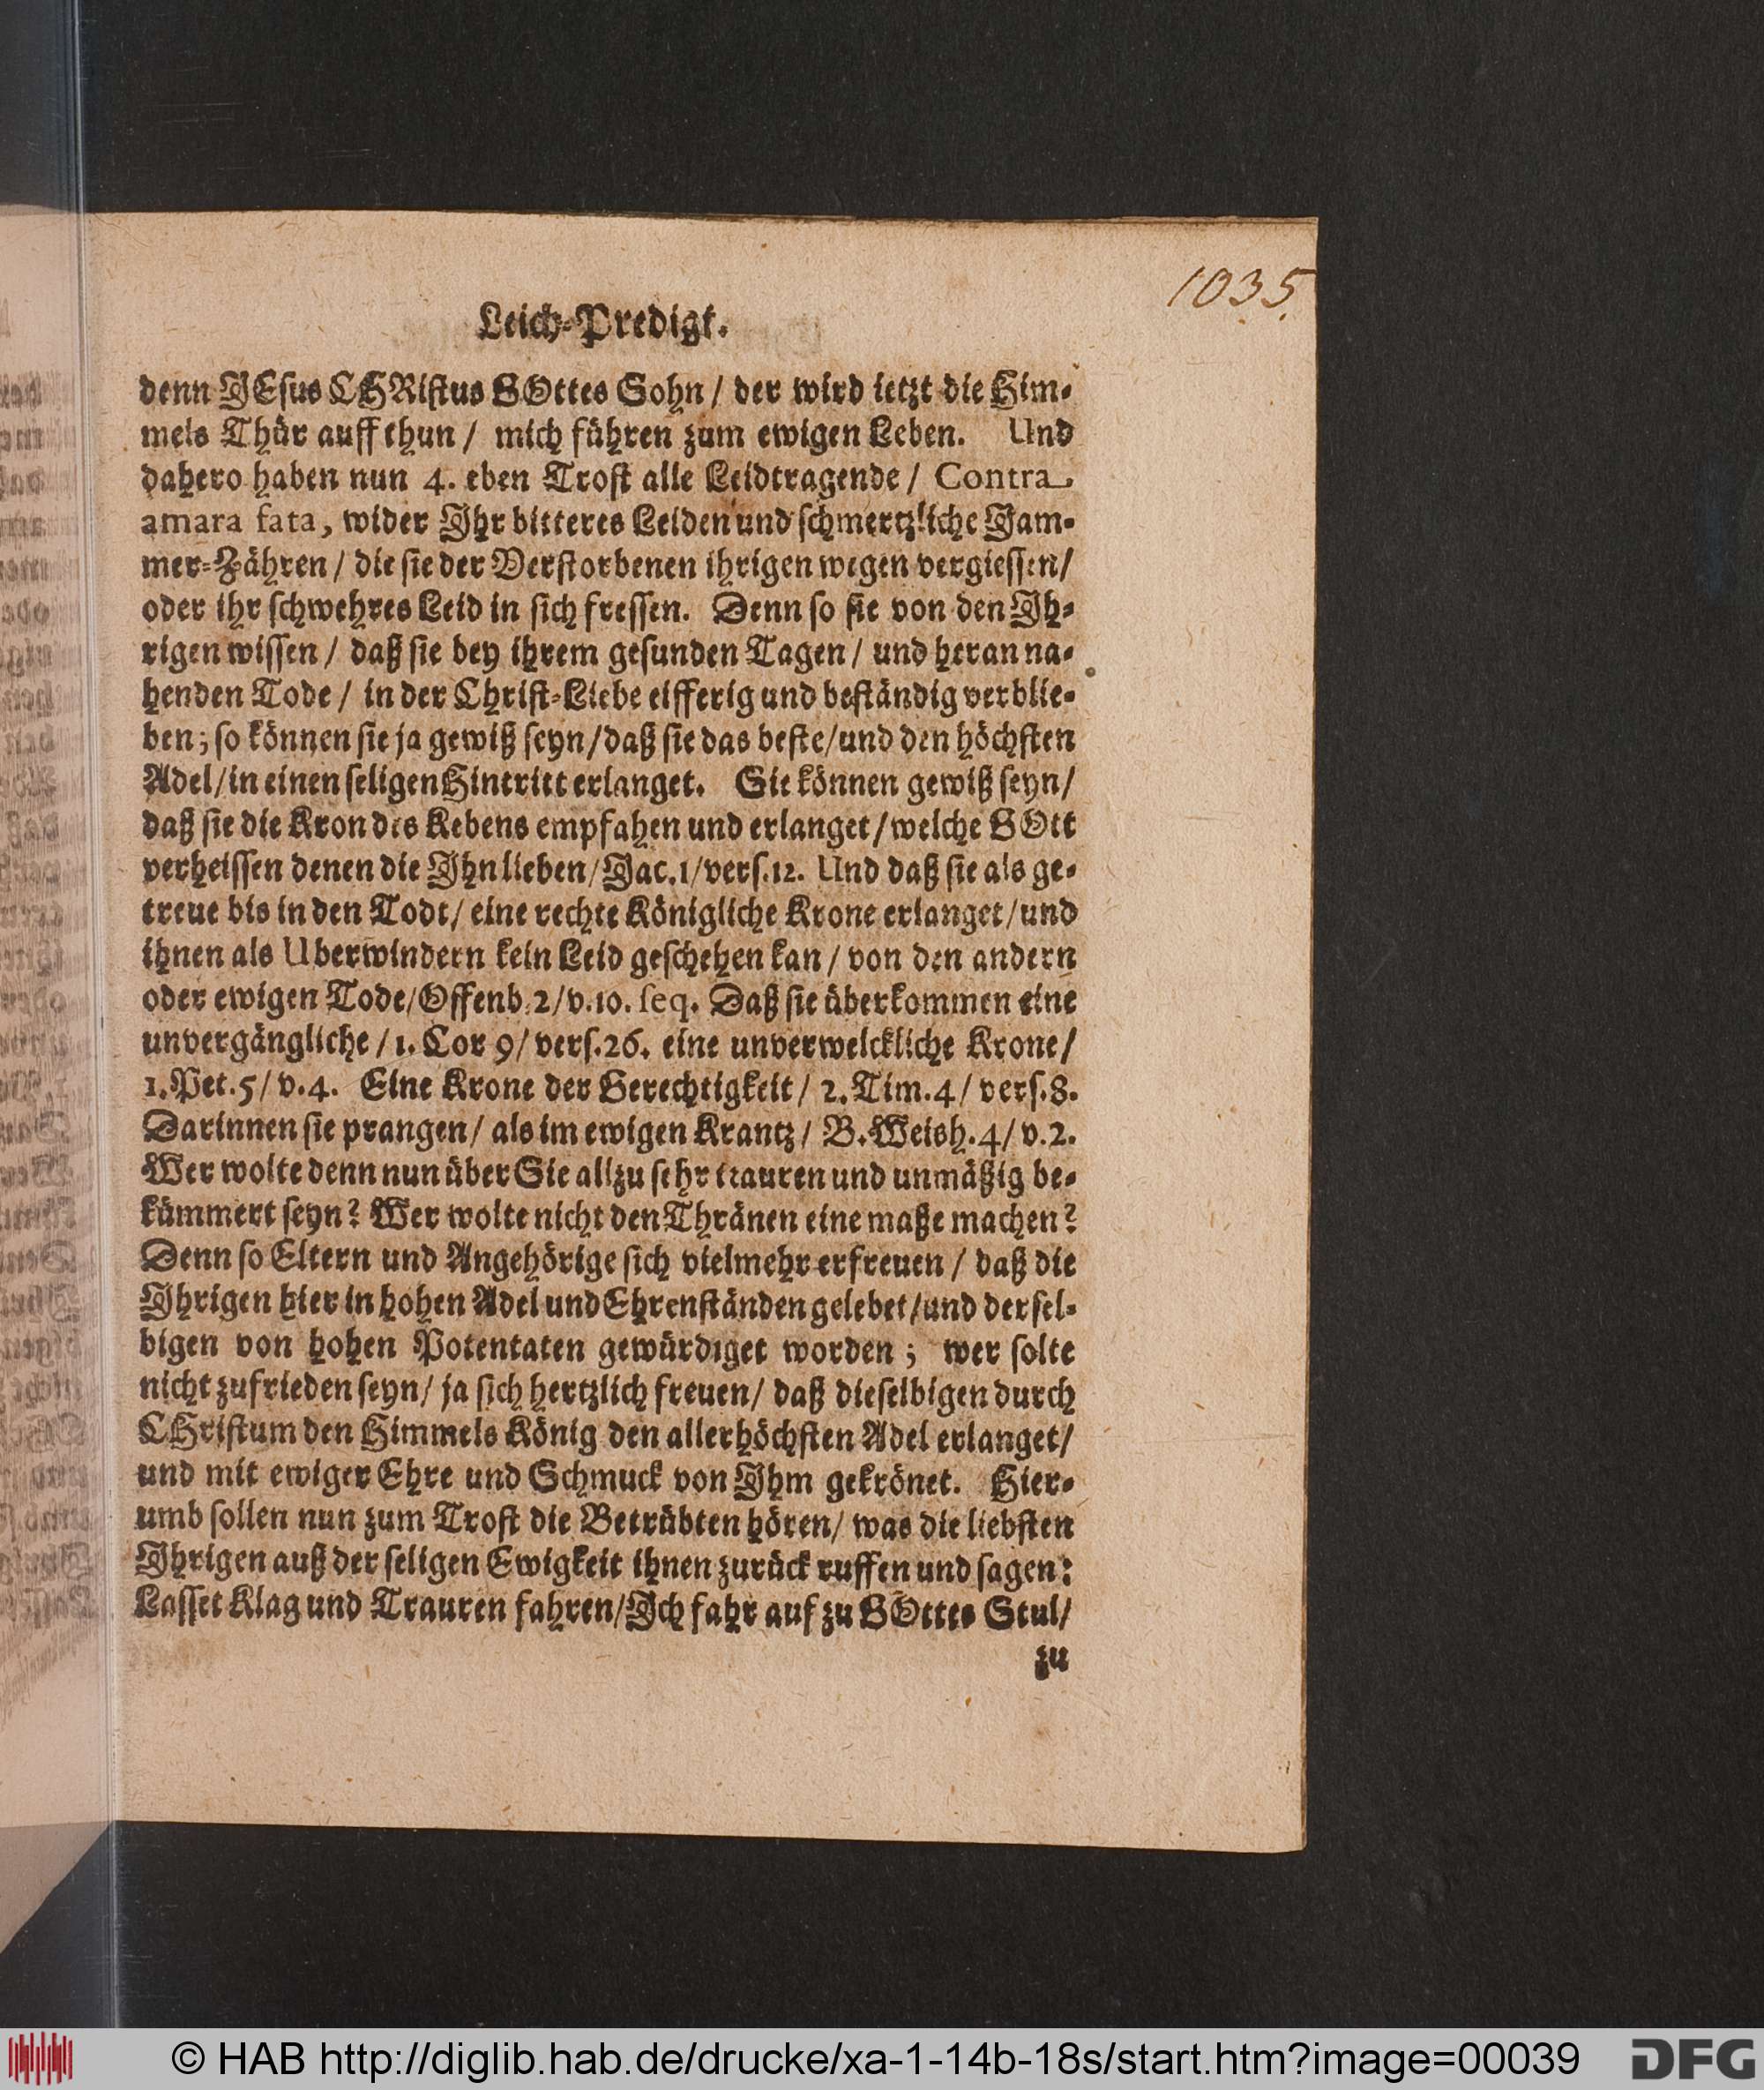 1035.
Leich-Predigt.
denn JEsus CHRistus GOttes Sohn / der wird ietzt die Him-
mels Thür auff thun / mich führen zum ewigen Leben. Und
dahero haben nun 4. eben Trost alle Leidtragende / Contra
amara fata, wider Ihr bitteres Leiden und schmertzliche Jam-
mer-Zähren / die sie der Verstorbenen ihrigen wegen vergiessen /
oder ihr schwehres Leid in sich fressen. Denn so sie von den Ih-
rigen wissen / daß sie bey ihrem gesunden Tagen / und heran na-
henden Tode / in der Christ-Liebe eifferig und beständig verblie-
ben; so können sie ja gewiß seyn / daß sie das beste / und den höchsten
Adel / in einen seligen Hintritt erlanget. Sie können gewiß seyn /
daß sie die Kron des Kebens empfahen und erlanget / welche GOtt
verheissen denen die Ihn lieben / Jac. 1 / vers. 12. Und daß sie als ge-
treue bis in den Todt / eine rechte Königliche Krone erlanget / und
ihnen als Uberwindern kein Leid geschehen kan / von den andern
oder ewigen Tode / Offenb. 2 / v. 10. seq. Daß sie überkommen eine
unvergängliche / 1. Cor 9 / vers. 26. eine unverwelckliche Krone /
1. Pet. 5 / v. 4. Eine Krone der Gerechtigkeit / 2. Tim. 4 / vers. 8.
Darinnen sie prangen / als im ewigen Krantz / B. Weish. 4 / v. 2.
Wer wolte denn nun über Sie allzu sehr trauren und unmäßig be-
kümmert seyn? Wer wolte nicht den Thränen eine maße machen?
Denn so Eltern und Angehörige sich vielmehr erfreuen / daß die
Ihrigen hier in hohen Adel und Ehrenständen gelebet / und dersel-
bigen von hohen Potentaten gewürdiget worden ; wer solte
nicht zufrieden seyn / ja sich hertzlich freuen / daß dieselbigen durch
CHristum den Himmels König den allerhöchsten Adel erlanget /
und mit ewiger Ehre und Schmuck von Ihm gekrönet. Hier-
umb sollen nun zum Trost die Betrübten hören / was die liebsten
Ihrigen auß der seligen Ewigkeit ihnen zurück ruffen und sagen:
Lasset Klag und Trauren fahren / Ich fahr auf zu GOttes Stul /
zu
© HAB http://diglib.hab.de/drucke/xa-1-14b-18s/start.htm?image=00039
DFG